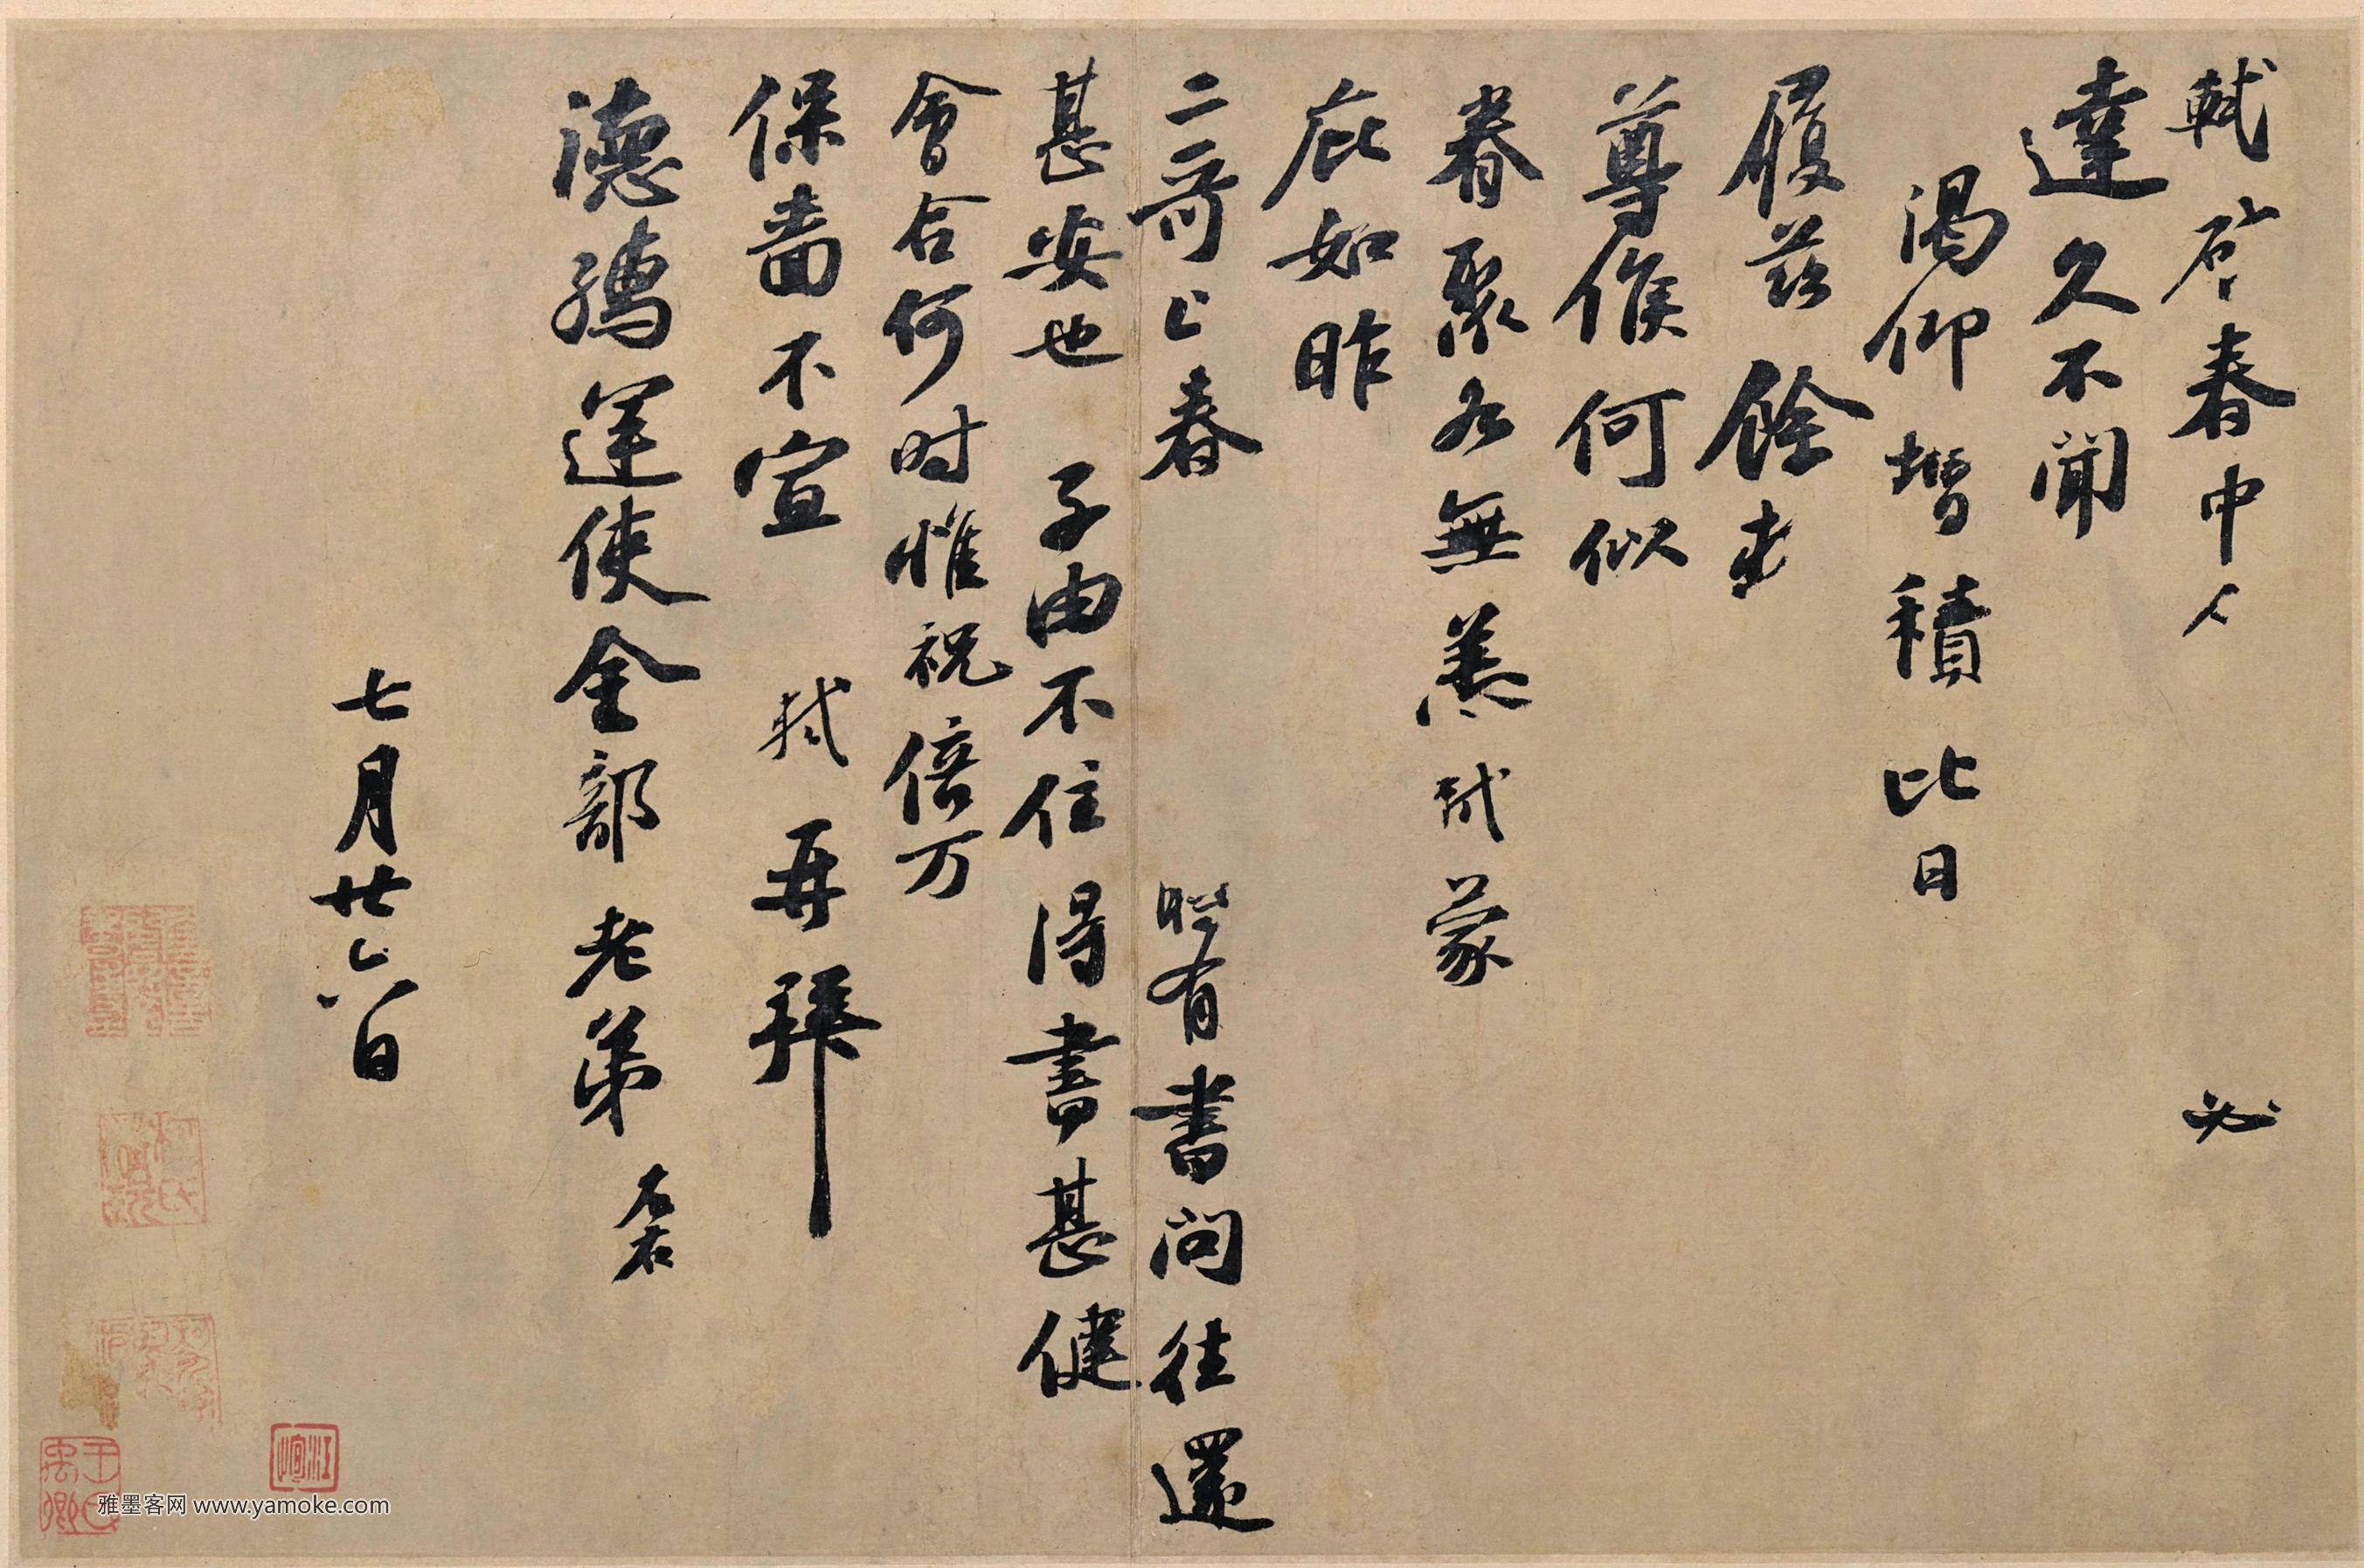 軾啓春中必
達久不聞
渴仰增積比日
履茲餘
尊候何似
眷聚各無恙軾蒙
庇如昨
二哥上春時有書問往還
甚安也子由不住得書甚健
會合何时惟祝倍万
保嗇不宣軾再拜
德孺運使金部老弟左右
七月廿六日
雅墨客网 www.yamoke.com